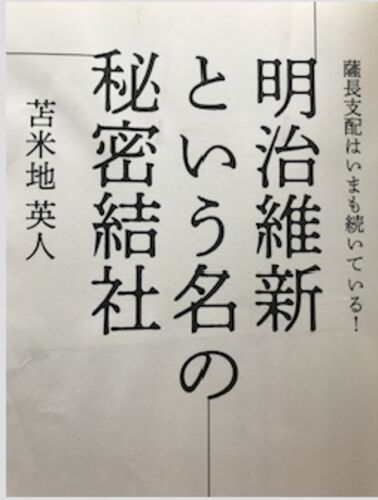 薩長支配はいまも続いている！
明治維新
という名の
秘密結社
苫米地 英人